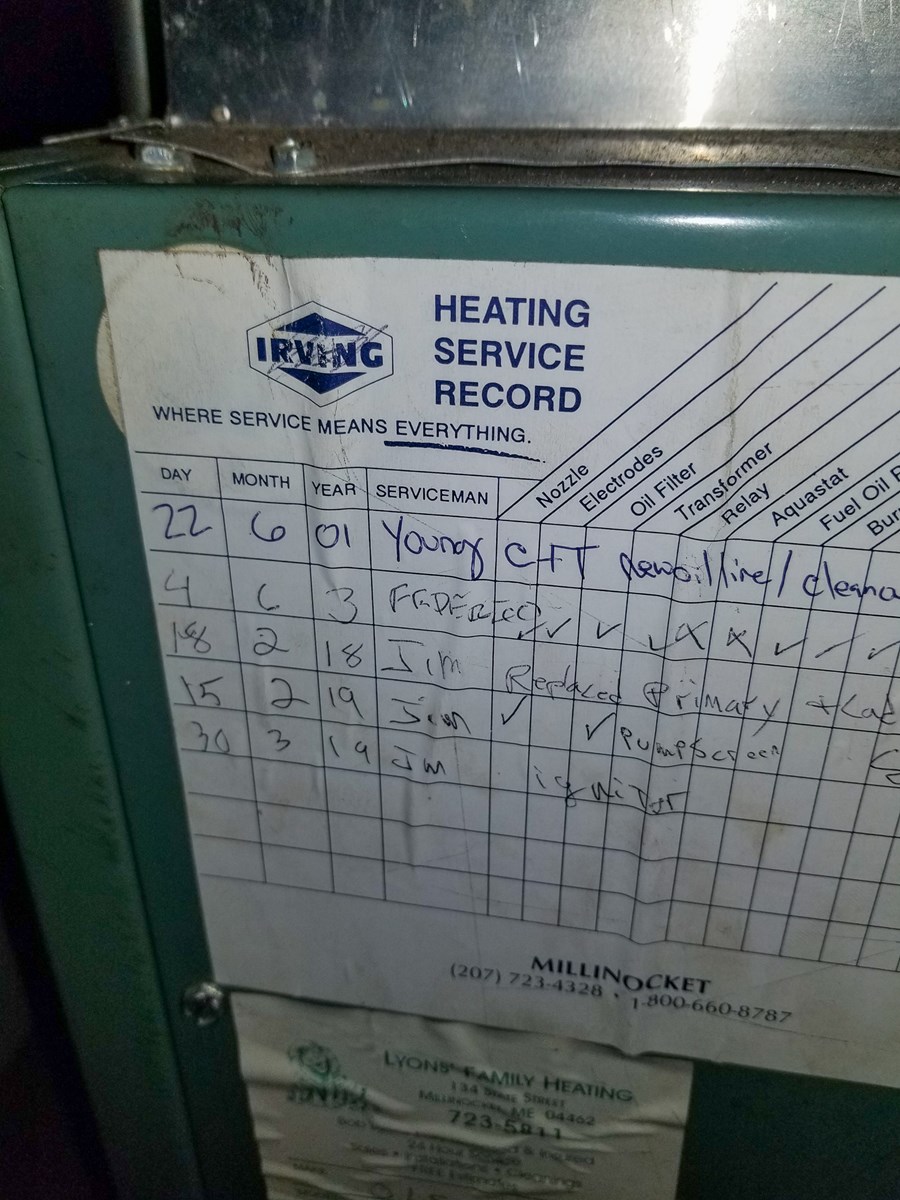 IRVING
HEATING
SERVICE
RECORD
WHERE SERVICE MEANS EVERYTHING.
DAY MONTH YEAR SERVICEMAN Nozzle Electrodes Oil Filter Transformer Relay Aquastat Fuel Oil
22 6 01 Young C+T new oil line/
4 6 3 ✓✓ ✓ ✓X X ✓ / ✓
18 2 18 Jim Replaced Primary
15 2 19 Jim ✓ ✓ Pump Screen
30 3 19 Jim ignitor
MILLINOCKET
(207) 723-4328 • 1-800-660-8787
LYONS' FAMILY HEATING
134 STATE STREET
MILLINOCKET, ME 04462
723-5911
24 Hour
Sales • Installations • Cleanings
FREE Estimates